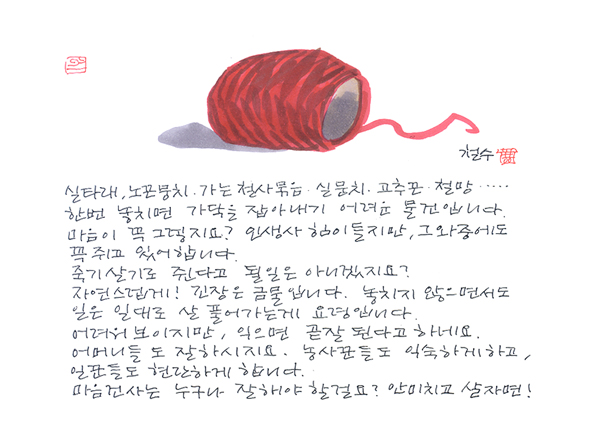 철수
실타래, 노끈뭉치. 가는 철사묶음. 실뭉치. 고추끈. 철망 .....
한번 놓치면 가닥을 잡아내기 어려운 물건입니다.
마음이 꼭 그렇지요? 인생사 힘이들지만, 그 와중에도
꼭 쥐고 있어야합니다.
죽기살기로 쥔다고 될일은 아니겠지요?
자연스럽게! 긴장은 금물입니다. 놓치지 않으면서도
일은 일대로 살 풀어가는게 요령입니다.
어려워 보이지만, 익으면 곧잘 된다고 하네요.
어머니들도 잘하시지요. 농사꾼들도 익숙하게하고,
일꾼들도 현란하게 합니다.
마음건사는 누구나 잘해야 할걸요? 안미치고 살자면!